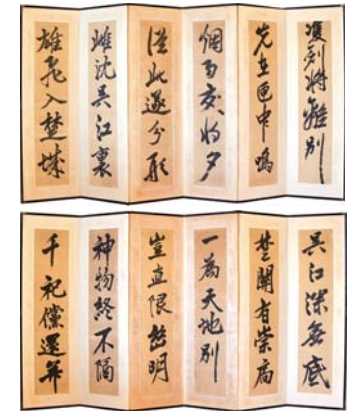 雙劍將離別
先在匣中鳴
烟雨交將夕
從此遂分形
雌沈吳江裏
雄飛入楚城
吳江深無底
楚關有崇扃
一為天地別
豈直限幽明
神物終不隔
千祀儻還并